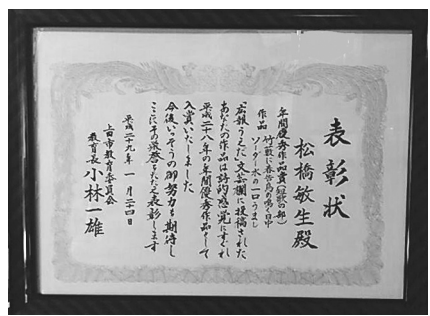 表彰状
松橋敏生殿
年間優秀作品賞(短歌の部)
作品 竹藪に春告鳥の鳴く日中
ソーダー水の一口うまし
「広報うえだ」文芸欄に投稿された
あなたの作品は詩的感覚にすぐれ
平成二十八年の年間優秀作品として
入賞いたしました
今後いっそうの御努力を期待し
ここにその栄誉をたたえ表彰します
平成二十九年 一月二十四日
上田市教育委員会
教育長 小林一雄